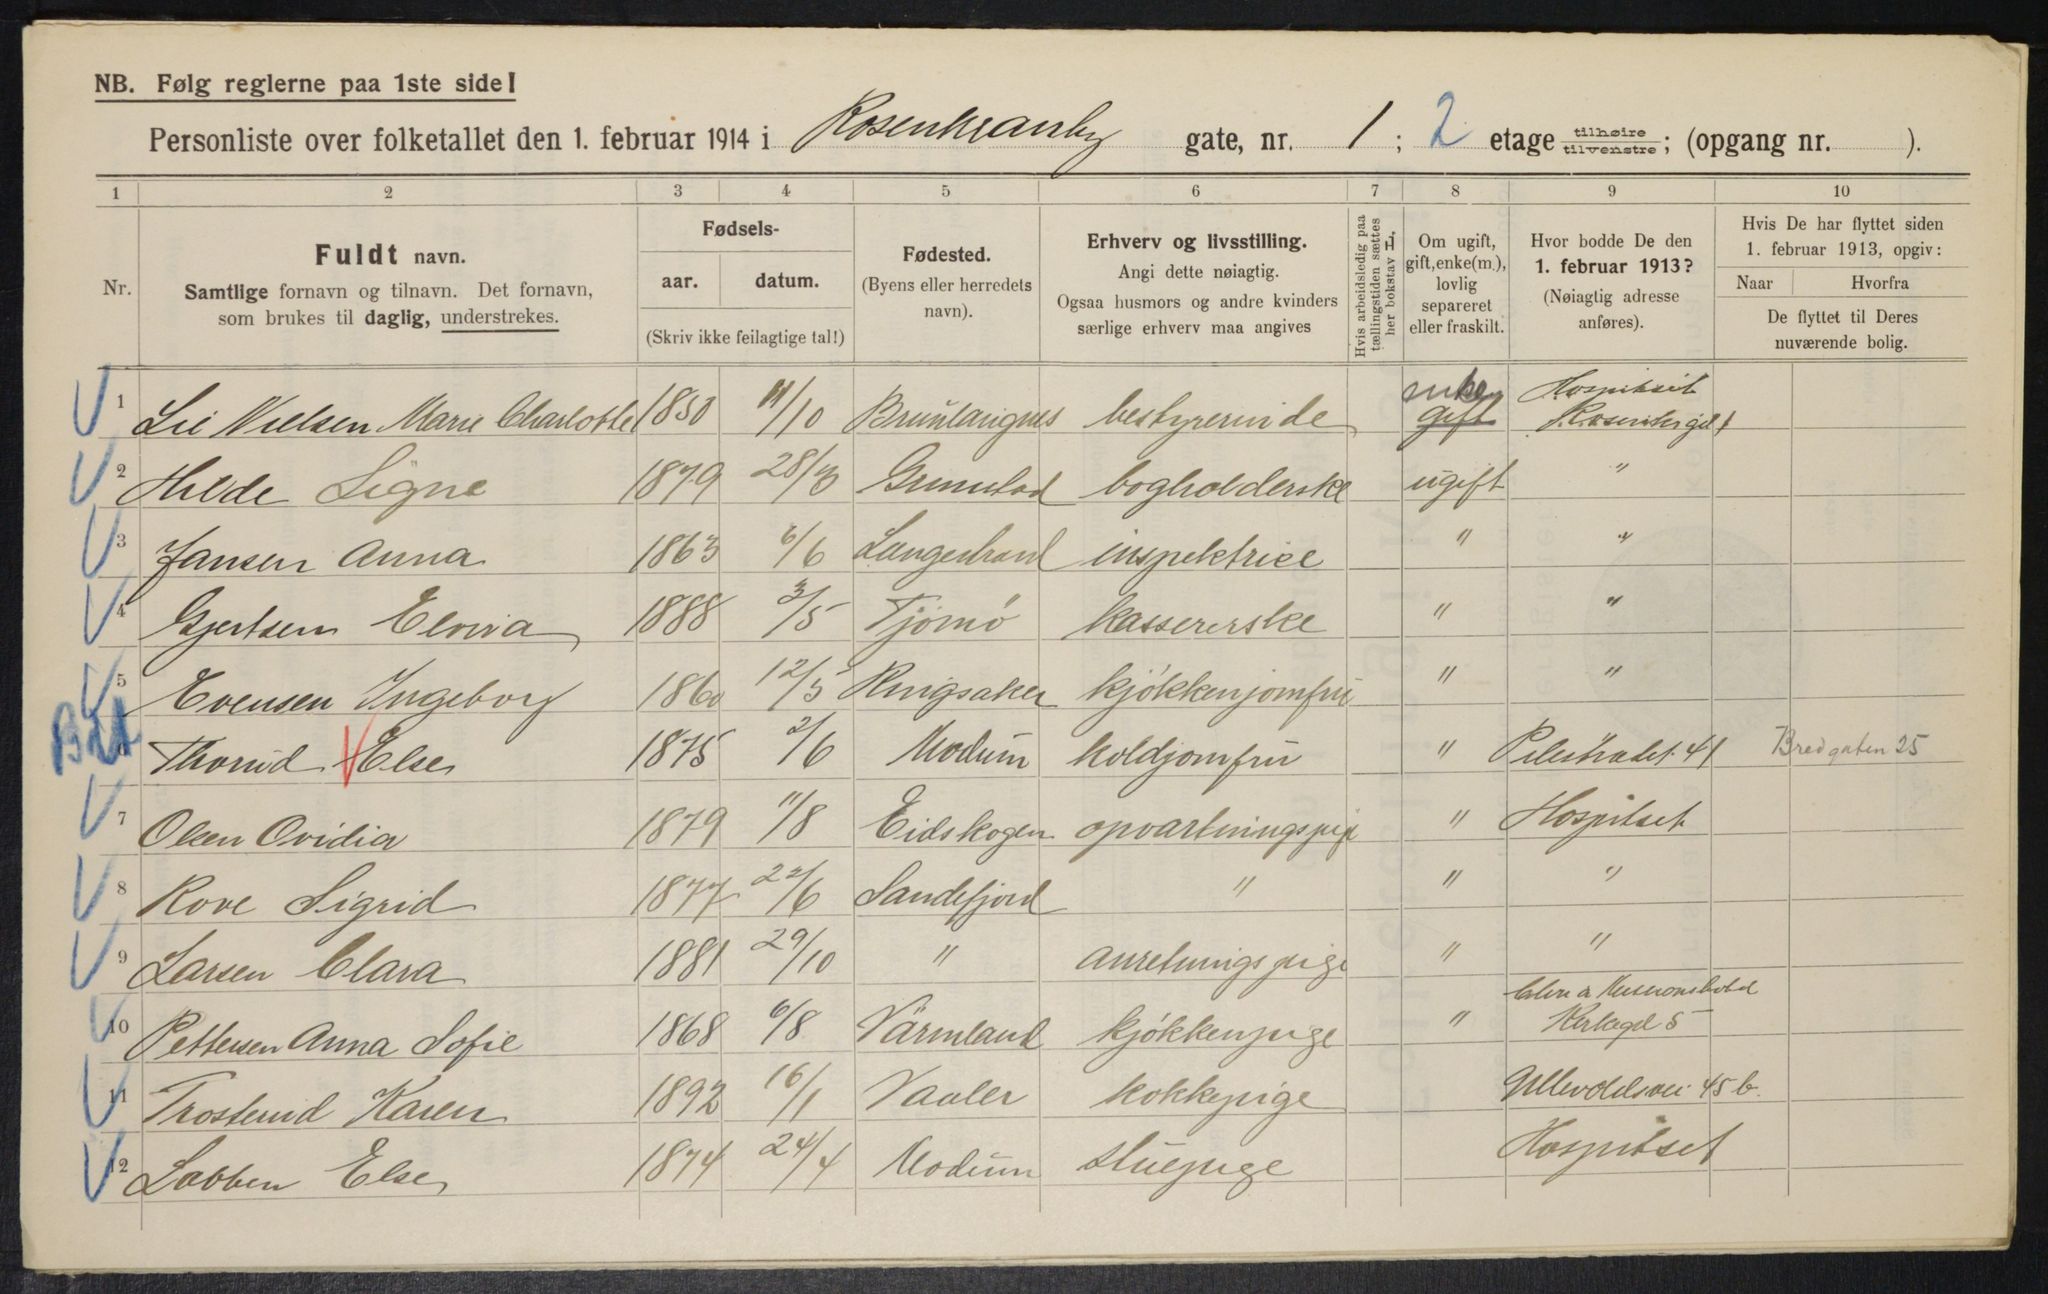 NB. Følg reglerne paa 1ste side!
Personliste over folketallet den 1. februar 1914 i Rosenkrantz gate, nr. 1 ; 2 etage tilhøire tilvenstre ; (opgang nr. ).
1 2 3 4 5 6 7 8 9 10
Nr.
Fuldt navn.
Samtlige fornavn og tilnavn. Det fornavn,
som brukes til daglig, understrekes.
Fødsels-
aar. datum.
(Skriv ikke feilagtige tal!)
Fødested.
(Byens eller herredets
navn).
Erhverv og livsstilling.
Angi dette nøiagtig.
Ogsaa husmors og andre kvinders
særlige erhverv maa angives
Hvis arbeidsledig paa
tællingstiden sættes
her bokstav L.
Om ugift,
gift, enke(m.),
lovlig
separeret
eller fraskilt.
Hvor bodde De den
1. februar 1913?
(Nøiagtig adresse
anføres).
Hvis De har flyttet siden
1. februar 1913, opgiv:
Naar Hvorfra
De flyttet til Deres
nuværende bolig.
1 Lie Nielsen Marie Charlotte 1850 11/10 Brunlangnes bestyrerinde enke gift Hospitset
2 Hilde Signe 1879 28/3 Grimstad bogholderske ugift "
3 Jansen Anna 1863 6/6 Langestrand inspektrice " "
4 Gjertsen Elvira 1888 3/5 Tjömö kassererske " "
5 Evensen Ingeborg 1860 12/5 Ringsaker kjökkenjomfru " "
6 Thorud Else 1875 2/6 Modum koldjomfru " Pilestrædet 41 Bredgaten 25
7 Olsen Ovidia 1879 11/8 Eidskogen opvartningspige " Hospitset
8 Rove Sigrid 1877 22/6 Sandefjord " " "
9 Larsen Clara 1881 29/10 " anretningspige " "
10 Pettersen Anna Sofie 1868 6/8 Värmland kjökkenpige " Missionshotel
Kirkegd 5
11 Trosterud Karen 1892 16/1 Vaaler kokkepige Ullevoldsvei 45 b.
12 Lobben Else 1874 24/4 Modum stuepige Hospitset